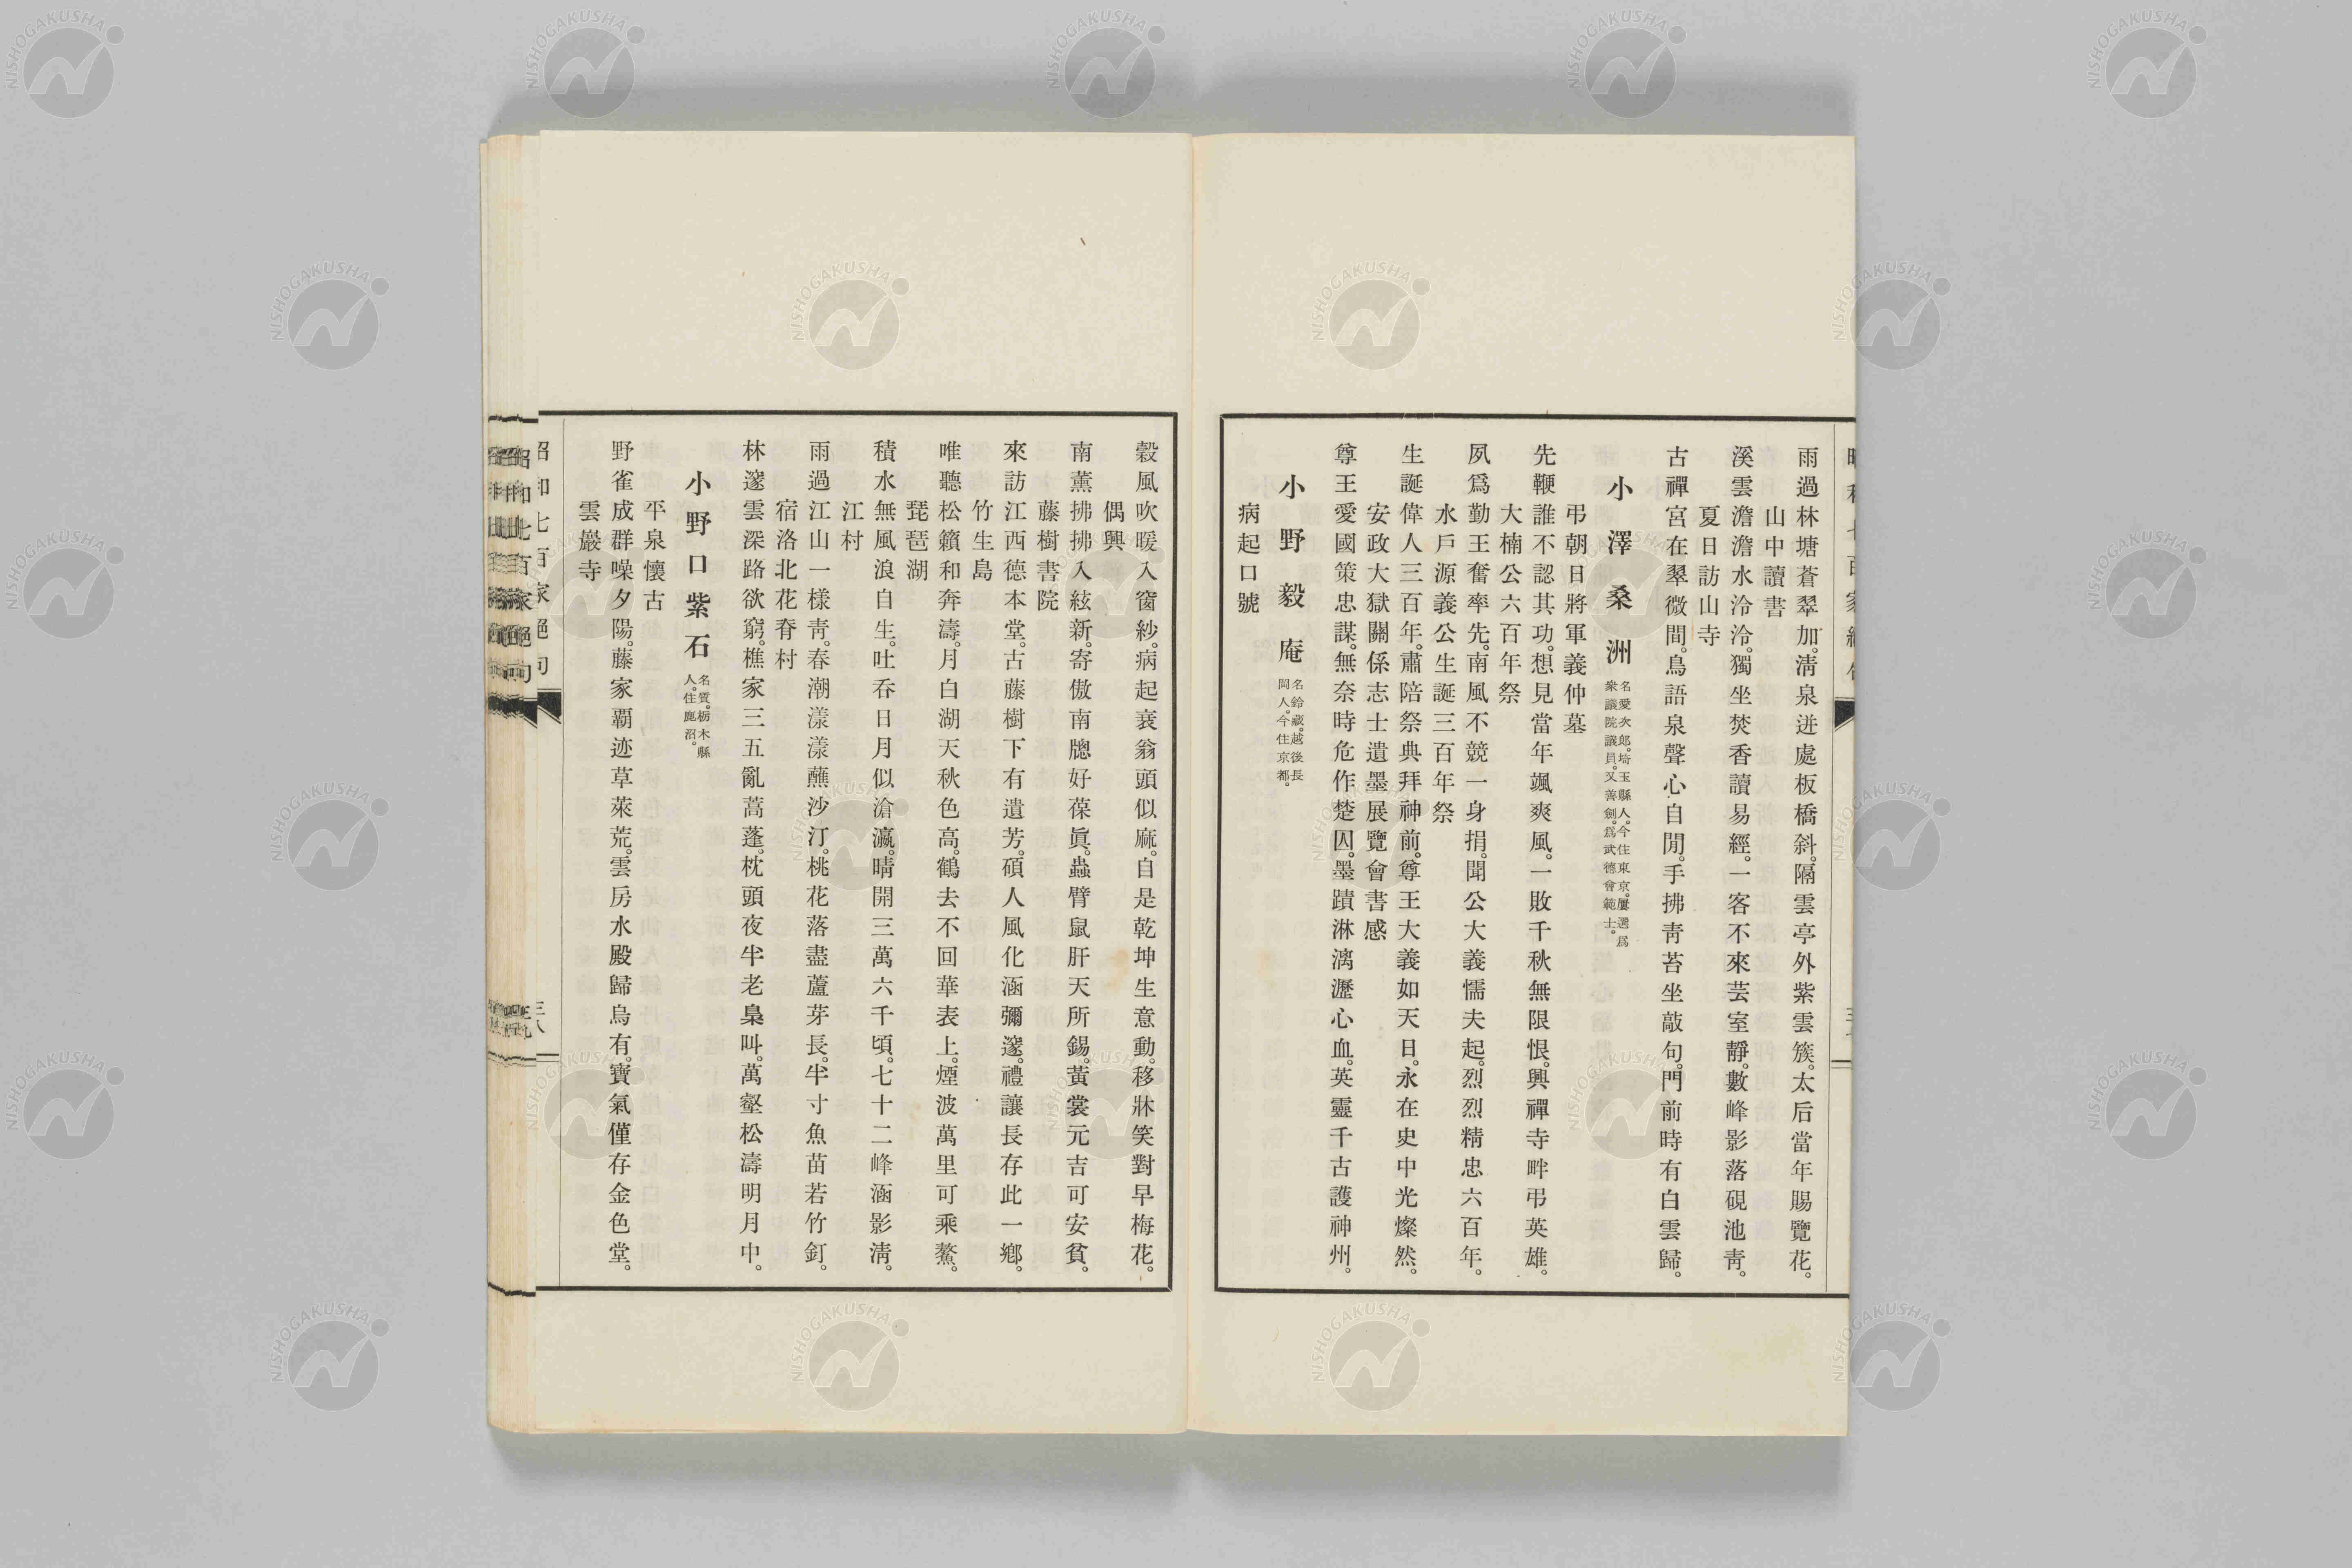 雨過林塘蒼翠加。清泉迸處板橋斜。隔雲亭外紫雲簇。太后當年賜覽花。
山中讀書
溪雲澹澹水泠泠。獨坐焚香讀易經。一客不來芸室靜。數峰影落硯池靑。
夏日訪山寺
古禪宮在翠微間。鳥語泉聲心自閒。手拂靑苔坐敲句。門前時有白雲歸。
小澤桑洲
名愛次郎。埼玉縣人。今住東京。屢選爲
衆議院議員。又善劍。爲武德會範士。
弔朝日將軍義仲墓
先鞭誰不認其功。想見當年颯爽風。一敗千秋無限恨。興禪寺畔弔英雄。
大楠公六百年祭
夙爲勤王奮率先。南風不競一身捐。聞公大義懦夫起。烈烈精忠六百年。
水戶源義公生誕三百年祭
生誕偉人三百年。肅陪祭典拜神前。尊王大義如天日。永在史中光燦然。
安政大獄關係志士遺墨展覽會書感
尊王愛國策忠謀。無奈時危作楚囚。墨蹟淋漓瀝心血。英靈千古護神州。
小野毅庵
名鈴藏。越後長
岡人。今住京都。
病起口號
穀風吹暖入窗紗。病起衰翁頭似麻。自是乾坤生意動。移牀笑對早梅花。
偶興
南薰拂拂入絃新。寄傲南牕好葆眞。蟲臂鼠肝天所錫。黃裳元吉可安貧。
藤樹書院
來訪江西德本堂。古藤樹下有遺芳。碩人風化涵彌邃。禮讓長存此一鄕。
竹生島
唯聽松籟和奔濤。月白湖天秋色高。鶴去不回華表上。煙波萬里可乘鰲。
琵琶湖
積水無風浪自生。吐呑日月似滄瀛。晴開三萬六千頃。七十二峰涵影淸。
江村
雨過江山一樣靑。春潮漾漾蘸沙汀。桃花落盡蘆芽長。半寸魚苗若竹釘。
宿洛北花脊村
林邃雲深路欲窮。樵家三五亂蒿蓬。枕頭夜半老梟叫。萬壑松濤明月中。
小野口紫石
名質。栃木縣
人。住鹿沼。
平泉懷古
野雀成群噪夕陽。藤家覇迹草萊荒。雲房水殿歸烏有。寶氣僅存金色堂。
雲巖寺
昭和七百家絕句
三八